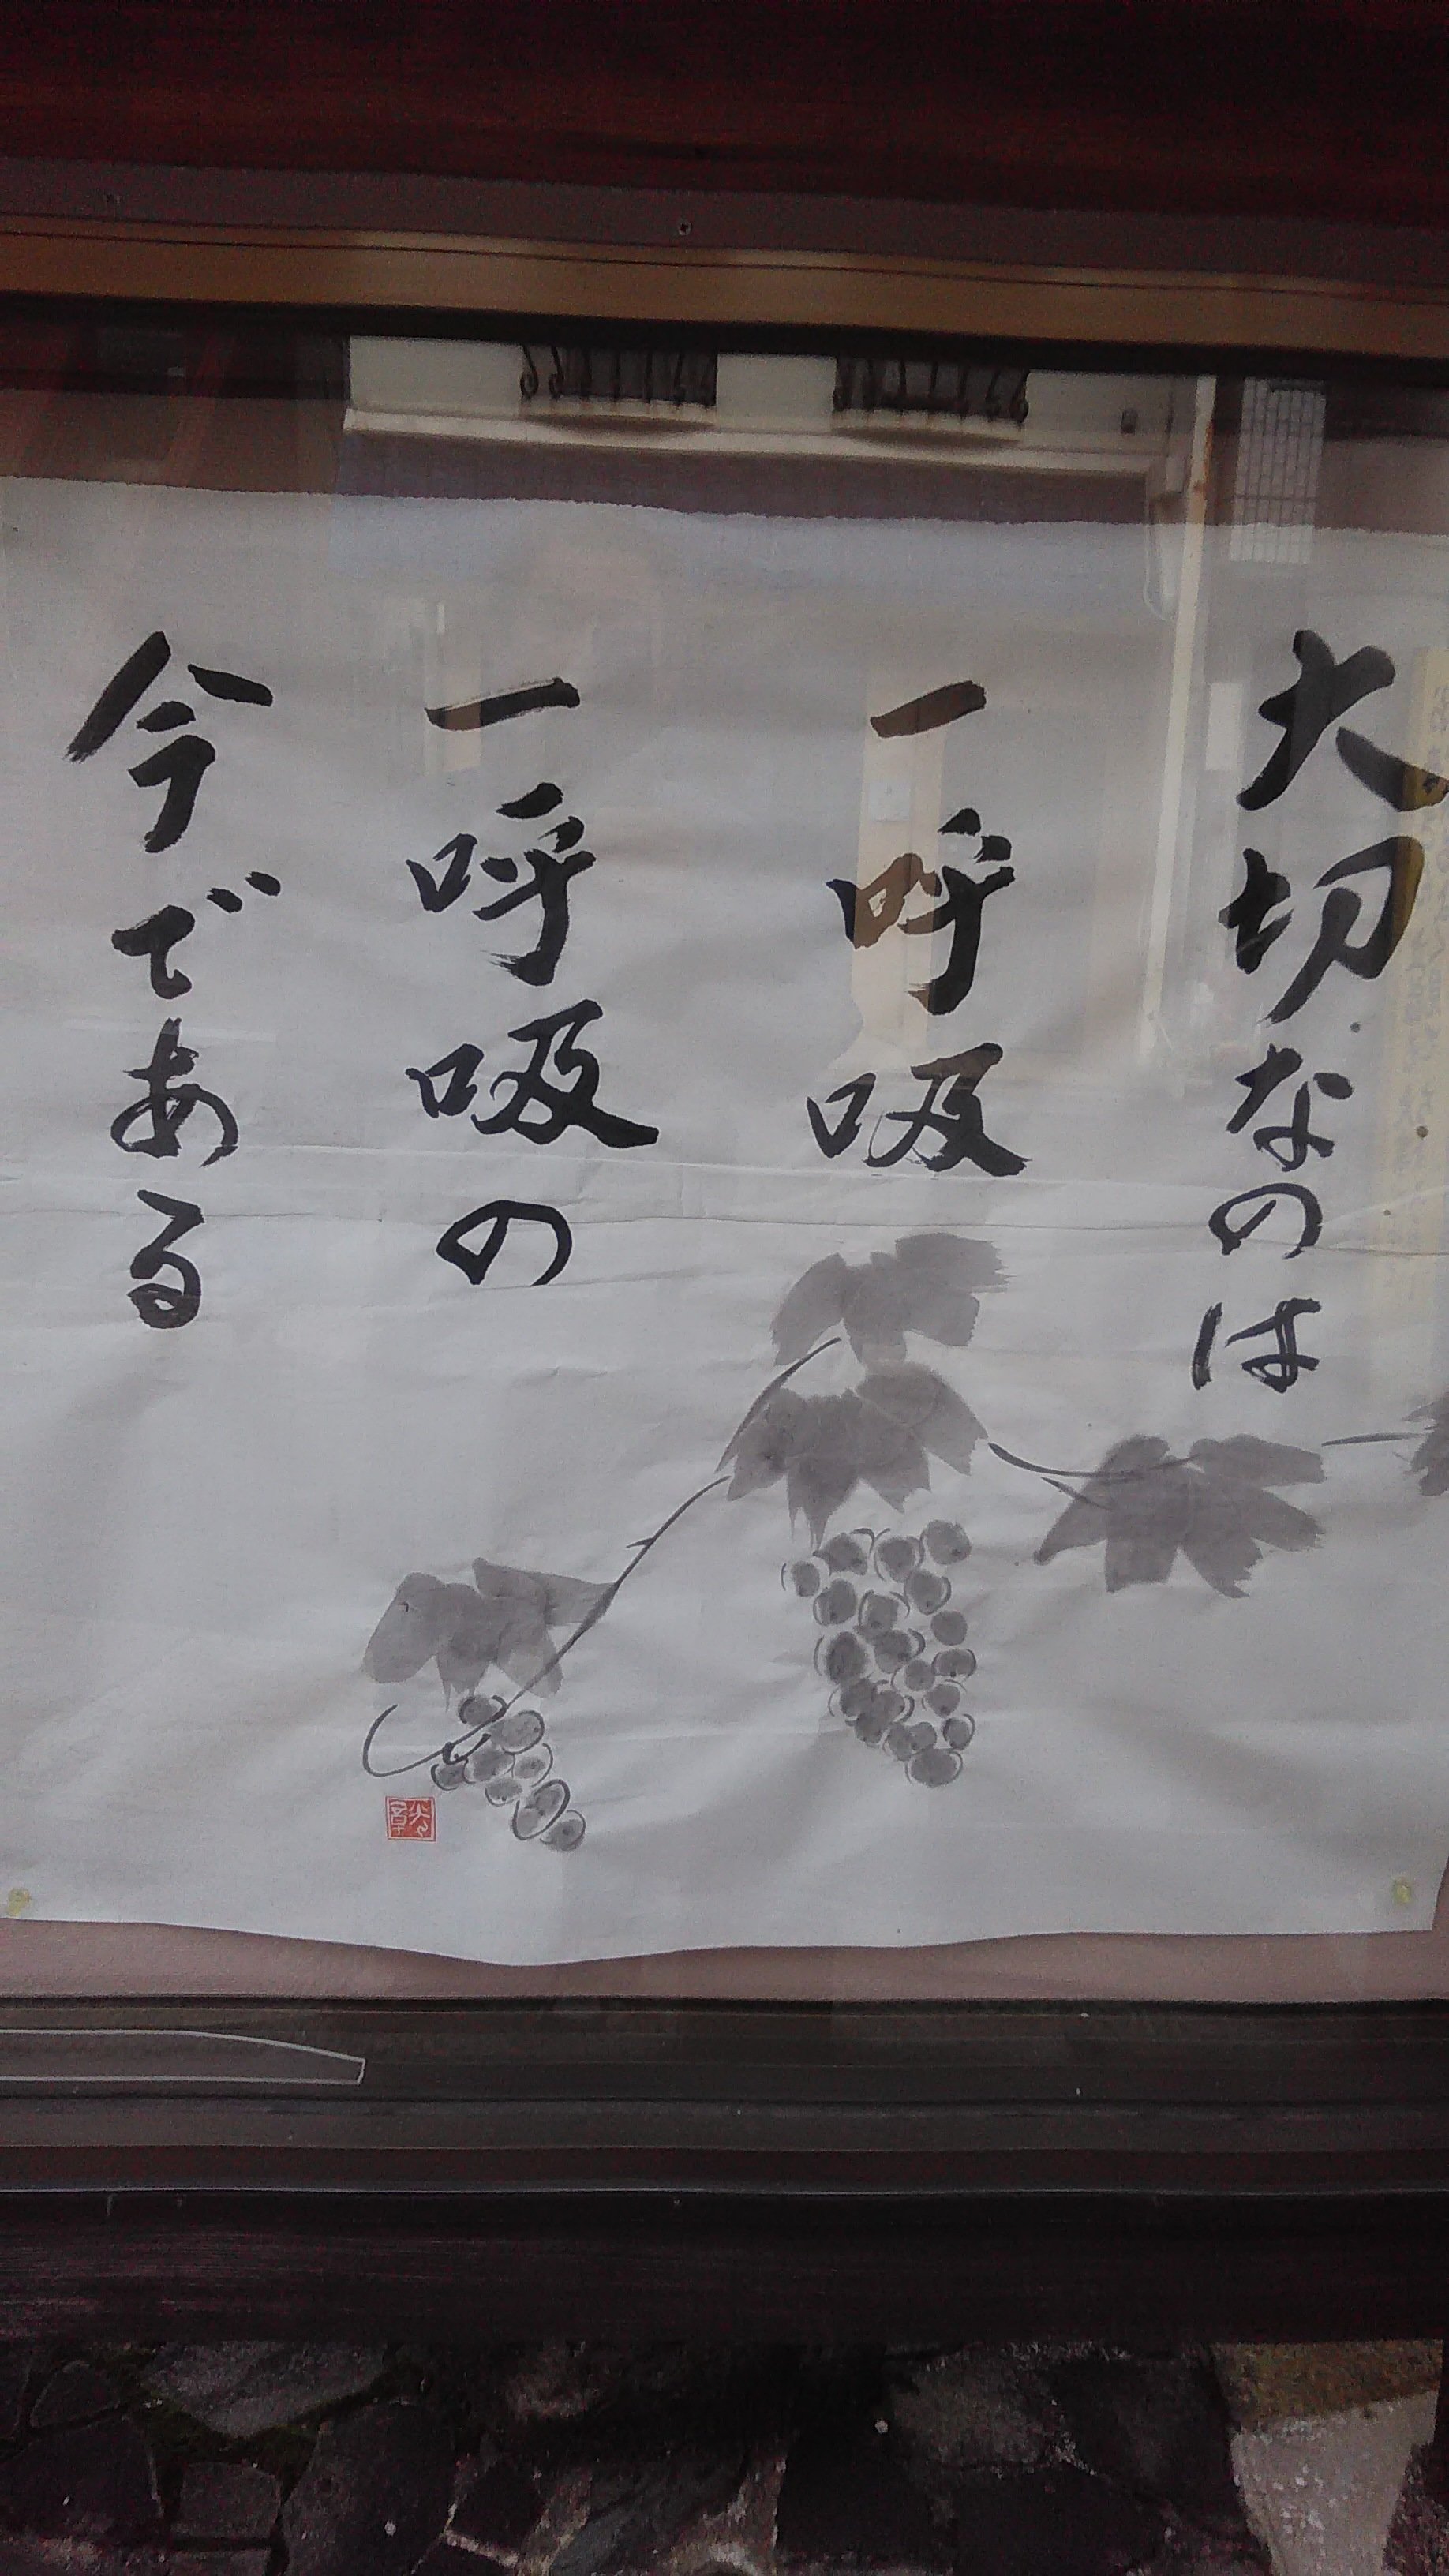 大切なのは
一呼吸
一呼吸の
今である